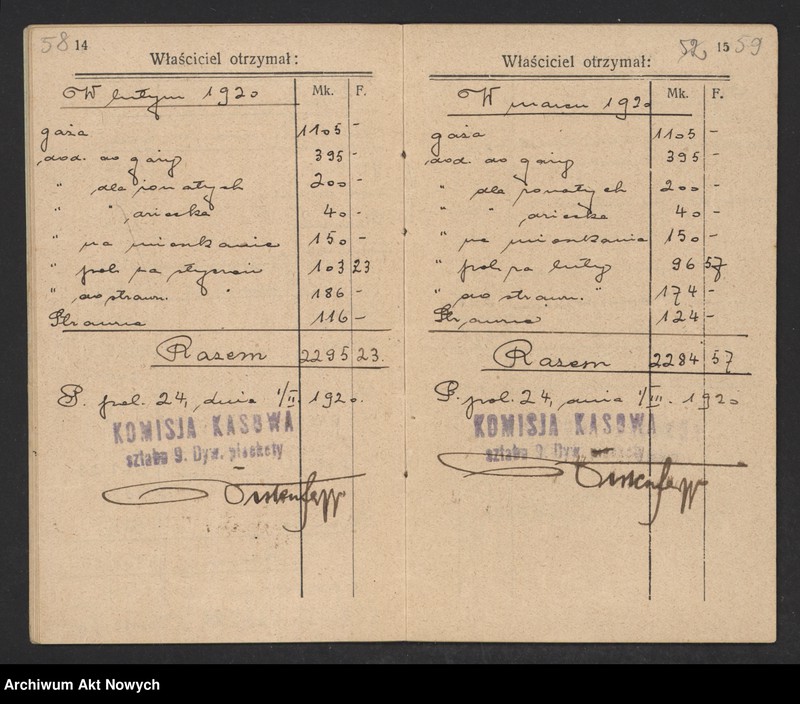 58 14
Właściciel otrzymał:
Mk. F.
W lutym 1920
gaża 1105 -
dod. do gaży 395 -
" dla żonatych 200 -
" " dziecka 40 -
" na mieszkanie 150 -
" pol. za styczeń 103 23
" do straw. 186 -
Strawne 116 -
Razem 2295 23.
P. pol. 24, dnia 1/II. 1920.
KOMISJA KASOWA
sztabu 9. Dyw. piechoty
52 15 59
Właściciel otrzymał:
Mk. F.
W marcu 1920
gaża 1105 -
dod. do gaży 395 -
" dla żonatych 200 -
" " dziecka 40 -
" na mieszkania 150 -
" pol. za luty 96 57
" do straw. " 174 -
Strawne 124 -
Razem 2284 57
P. pol. 24, dnia 1/III. 1920
KOMISJA KASOWA
sztabu 9. Dyw. piechoty
Archiwum Akt Nowych